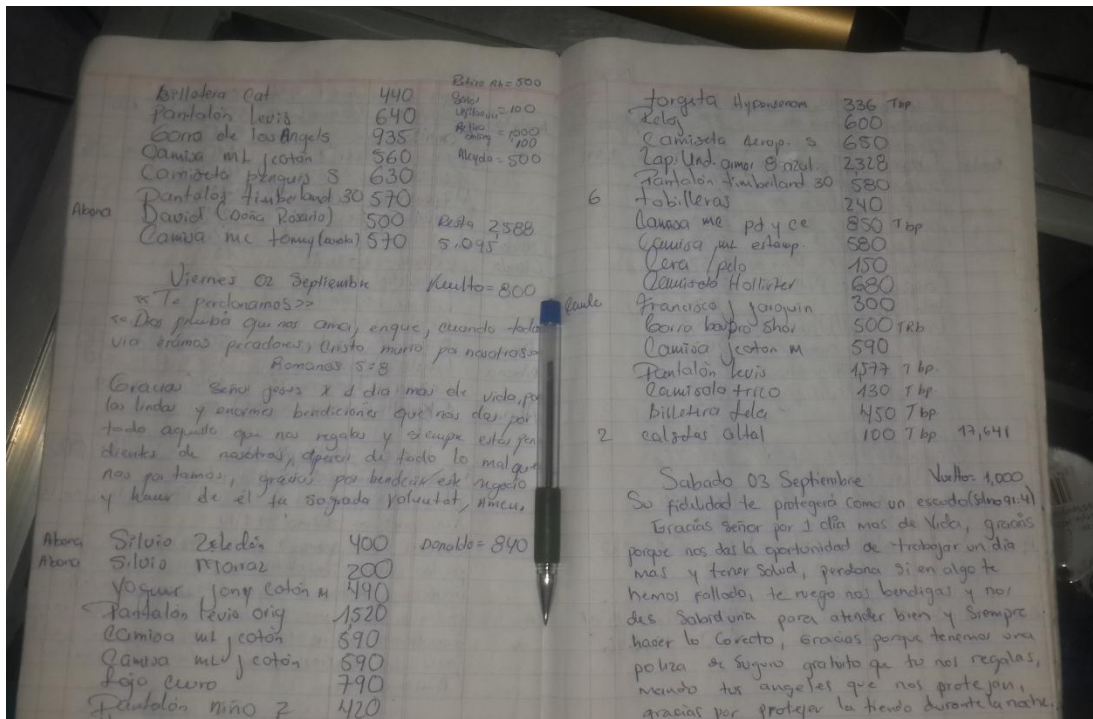 Retiro Ab = 500
Billetera Cat 440
Pantalón Levis 640
Señor vigilante = 100
Gorra de los Angels 935
Retiro = 1000
100
Camisa mL j coton 560
Aleyda = 500
Camiseta penguis S 630
Pantalón timberland 30 570
Abona David (Doña Rosario) 500 Resta 2,588
Camisa mc tomy 570 5,095
Viernes 02 Septiembre Vuelto = 800
<<Te perdonamos>>
<<Dios prueba que nos ama, enque, cuando toda
via eramos pecadores, Cristo murio po nosotros>>
Romanos 5:8
Gracias Señor Jesus x 1 dia mas de vida, por
las lindas y enormes bendiciones que nos das por
todo aquello que nos regalas y siempre estas pen
dientes de nosotros, apesar de todo lo mal que
nos portamos, gracias por bendecir este negocio
y hacer de él tu sagrada voluntat, Amen.
Abona Silvio Zeledón 400 Donaldo = 840
Abona Silvio Morraz 200
Yoguur jony Cotón M 490
Pantalón Levis orig 1520
Camisa mL j cotón 590
Camisa mL j cotón 590
Faja cuero 790
Pantalón niño 2 420
forgita 336 Tbp
Reloj 600
Camiseta Aerop. S 650
Zap. Und. armor 8 azul. 2328
Pantalón timberland 30 580
6 tobilleras 240
Camisa mc pd y ce 850 Tbp
Camisa mL estamp. 580
Cera /pelo 150
Camiseta Hollister 680
Francisco Joaquin 300
Gorro 500 TRb
Camisa j coton M 590
Pantalón Levis 1,577 Tbp.
Camisola trico 130 Tbp.
Billetera tela 450 Tbp
2 calsetas altal 100 Tbp 17,641
Sabado 03 Septiembre Vuelto= 1,000
Su fidelidad te protegerá como un escudo (Slmo 91:4)
Gracias Señor por 1 día mas de Vida, gracias
porque nos das la oportunidad de trabajar un día
mas y tener Salud, perdona si en algo te
hemos fallado, te ruego nos bendigas y nos
des Sabiduria para atender bien y Siempre
hacer lo Corecto, Gracias porque tenemos una
poliza de Suguro gratuito que tu nos regalas,
mando tus angeles que nos protejan,
gracias por protejer la tienda durante la noche.